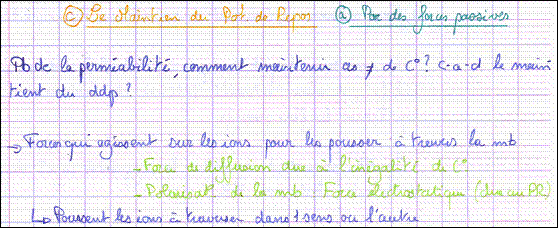 ⓒ Le Maintien du Pot. de Repos ⓐ Par des forces passives
Pb de la perméabilité, comment maintenir ces ≠ de C° ? c-a-d le main
tient du ddp ?
→ Forces qui agissent sur les ions pour les pousser à travers la mb
- Force de diffusion due à l'inégalité de C°
- Polarisat° de la mb : Force électrostatique (due au PR)
↳ Poussent les ions à traverser dans 1 sens ou l'autre